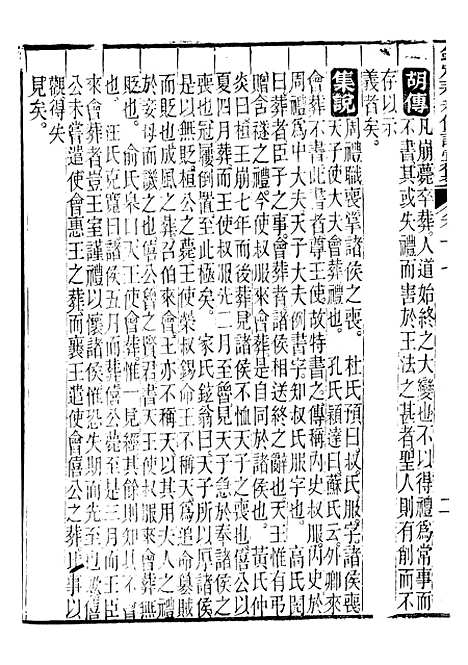 胡傳 凡崩薨卒葬人道始終之大變也不以得禮爲常事而
不書其或失禮而害於王法之甚者聖人則有削而不
存以示
義者矣。
集說 周禮職喪掌諸侯之喪。 杜氏預曰叔氏服字諸侯喪
天子使大夫會葬禮也。 孔氏穎達曰蘇氏云外卿來
會葬不書此書者尊王使故特書之傳稱內史叔服於
周禮爲中大夫天子大夫例書字知叔氏服字也。 高氏閌
曰葬者臣子之事會葬者諸侯相送終之辭也天王惟有弔
賵含襚之禮。今使叔服會葬是自同於諸侯也。 黃氏仲
炎曰桓王崩七年而後葬見諸侯不恤天子之喪也僖公薨
夏四月葬而王使叔服先二月至魯見天子急於奉諸侯之
喪也冠屨倒置至此極矣。 家氏鉉翁曰天子所以厚諸侯
也以無貶桓公之薨王使榮叔錫命王不稱天追命篡賊
而貶也成風之薨召伯來會王亦不稱天以其用夫人之禮
於妾母而譏之也僖公魯之賢君書天王使叔服來會葬無
貶也。 俞氏皐曰天王來會葬惟一見經其餘則知其不會
也。 汪氏克寬曰諸侯五月而葬僖公薨至是三月而王臣
來會葬者豈王室謹禮以懷諸侯惟恐失期而先至歟文
公未嘗遣使會惠王之葬而襄王遣使會僖公之葬比事以
觀得失
見矣。